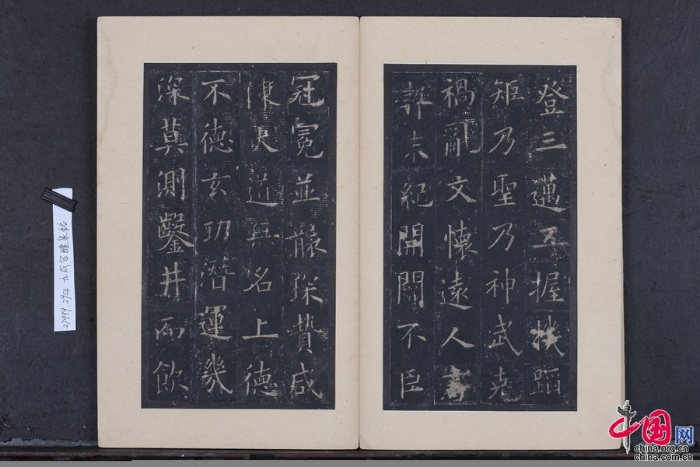 登三邁五握機蹈
矩乃聖乃神武克
禍亂文懷遠人書
契未紀開闢不臣
冠冕並襲琛贄咸
陳大道無名上德
不德玄功潛運幾
深莫測鑿井而飲
九成宫醴泉铭
中国网
china.org.cn
china.com.cn